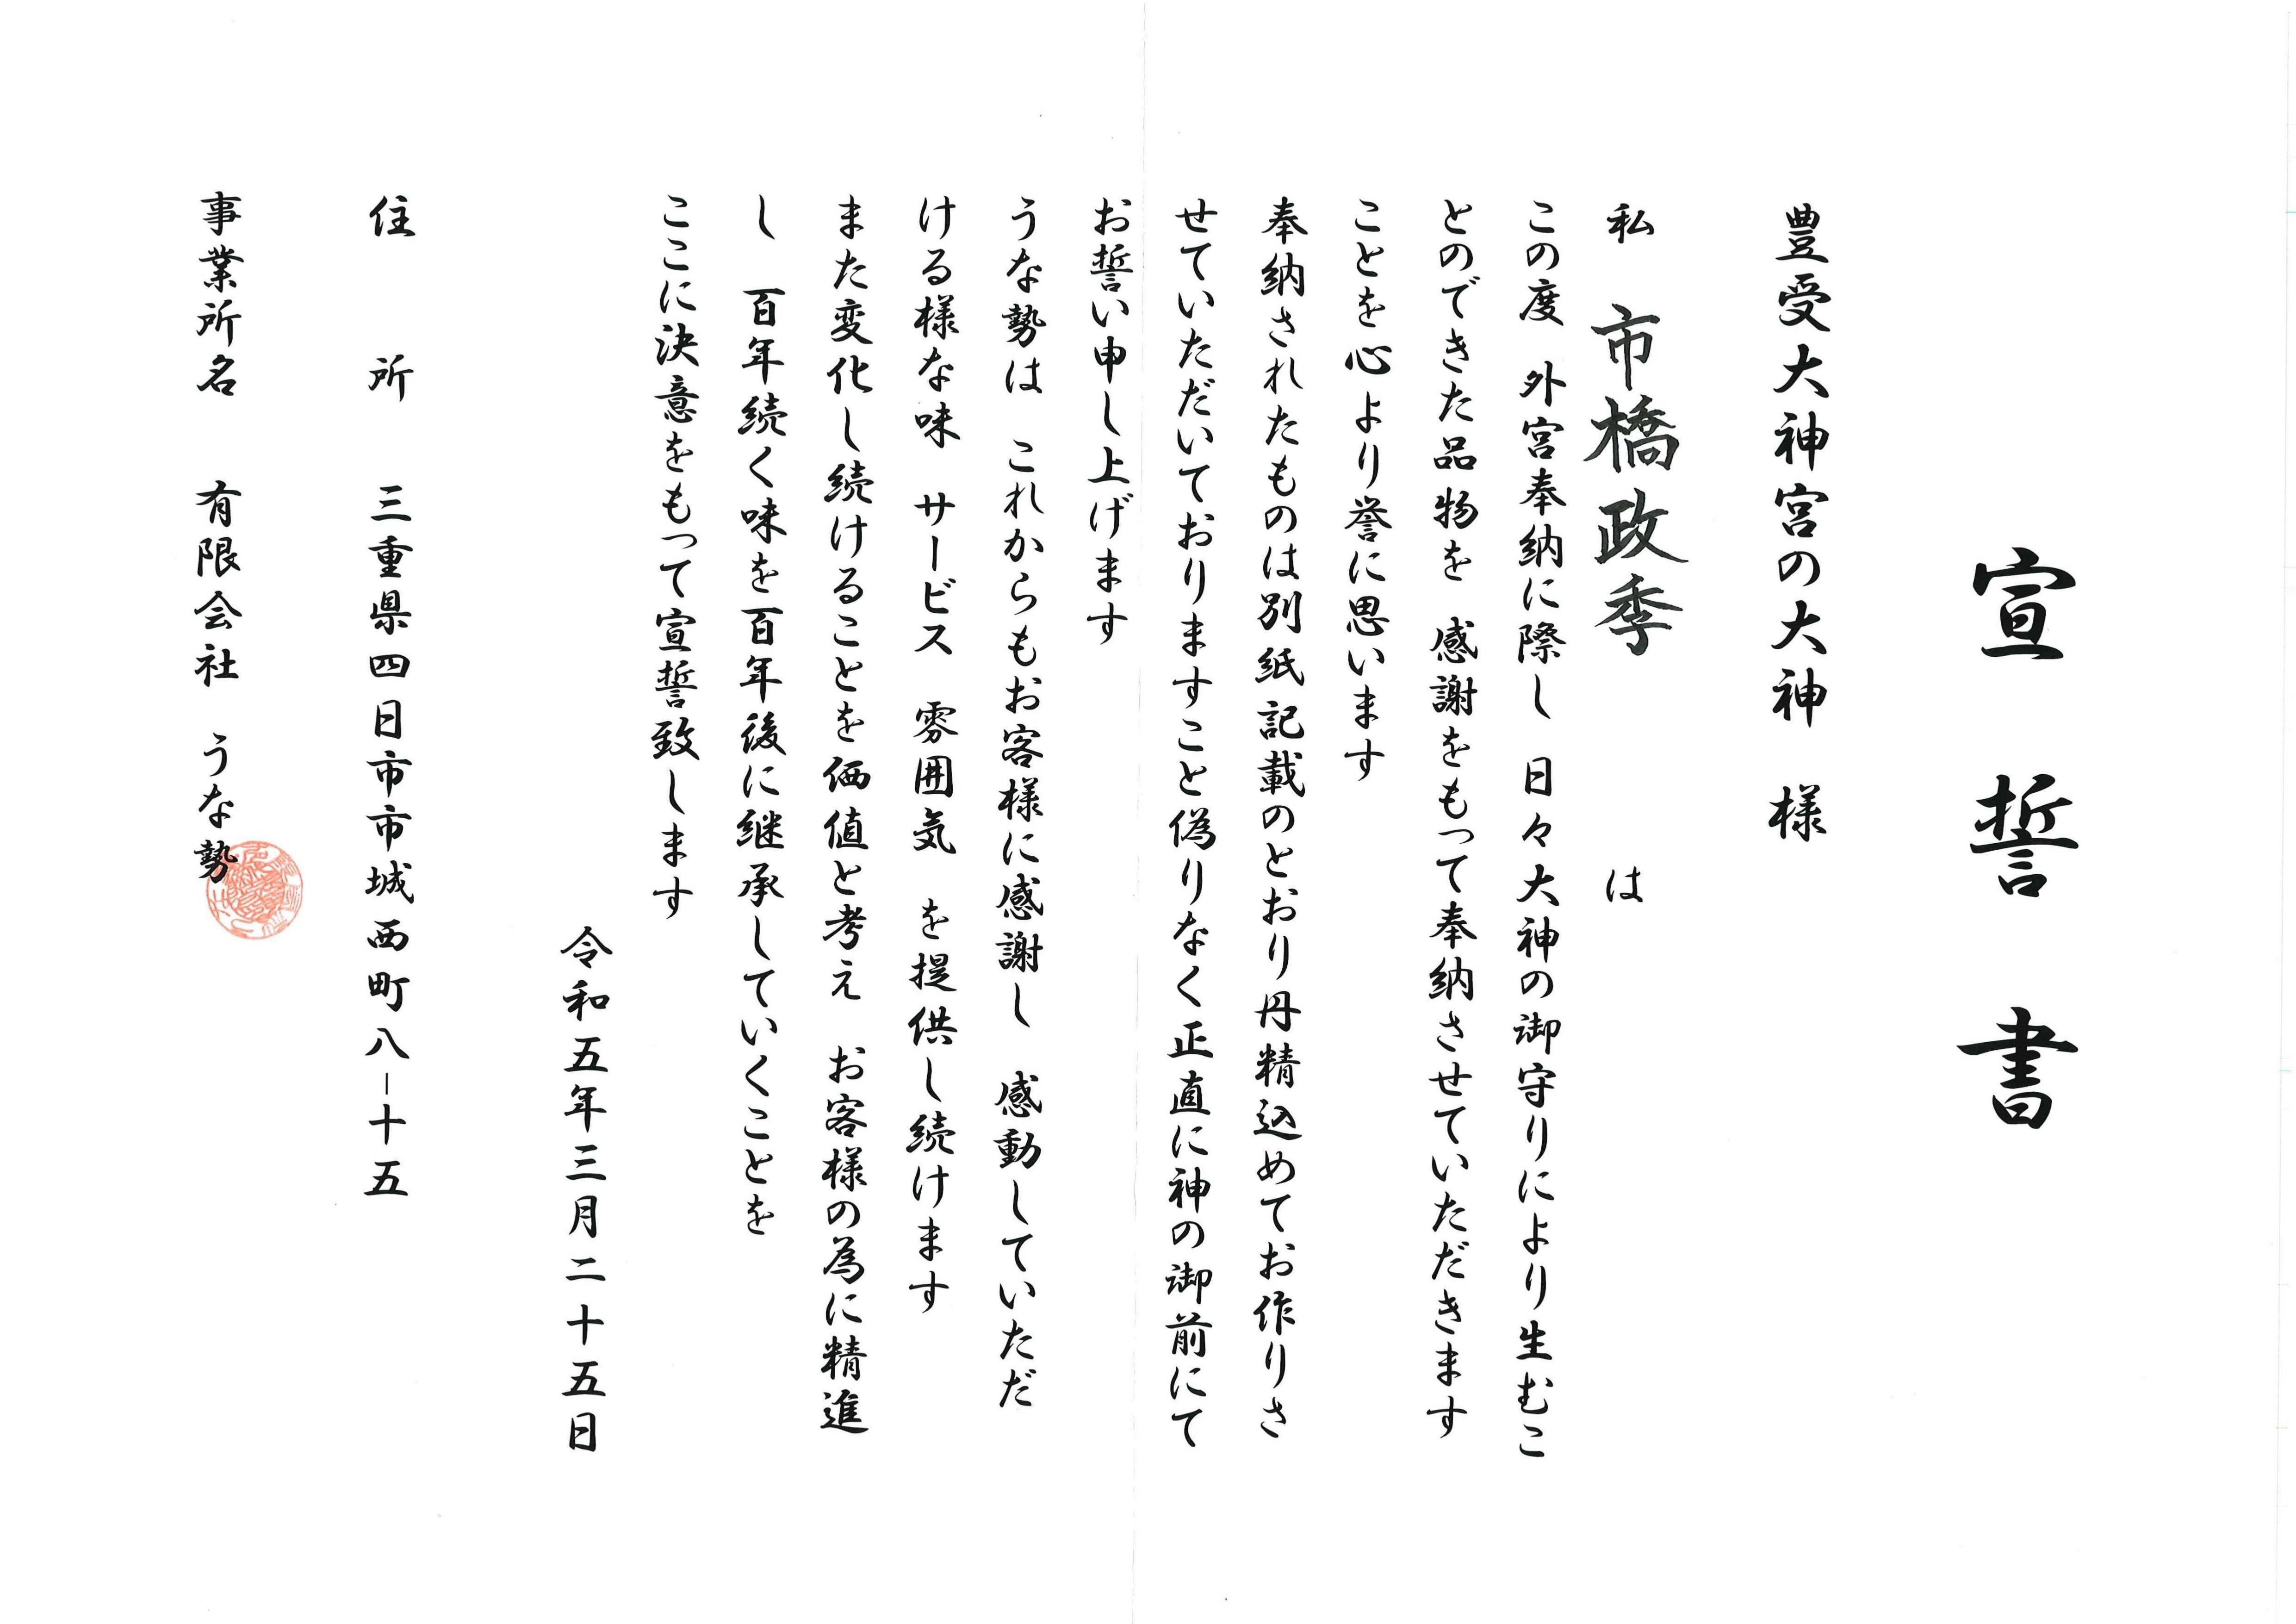 宣誓書
豊受大神宮の大神　様
私　市橋政季　は
この度　外宮奉納に際し　日々大神の御守りにより生むこ
とのできた品物を　感謝をもって奉納させていただきます
ことを心より誉に思います
奉納されたものは別紙記載のとおり丹精込めてお作りさ
せていただいておりますこと偽りなく正直に神の御前にて
お誓い申し上げます
うな勢は　これからもお客様に感謝し　感動していただ
ける様な味　サービス　雰囲気　を提供し続けます
また変化し続けることを価値と考え　お客様の為に精進
し　百年続く味を百年後に継承していくことを
ここに決意をもって宣誓致します
令和五年三月二十五日
住　所　三重県四日市市城西町八－十五
事業所名　有限会社　うな勢